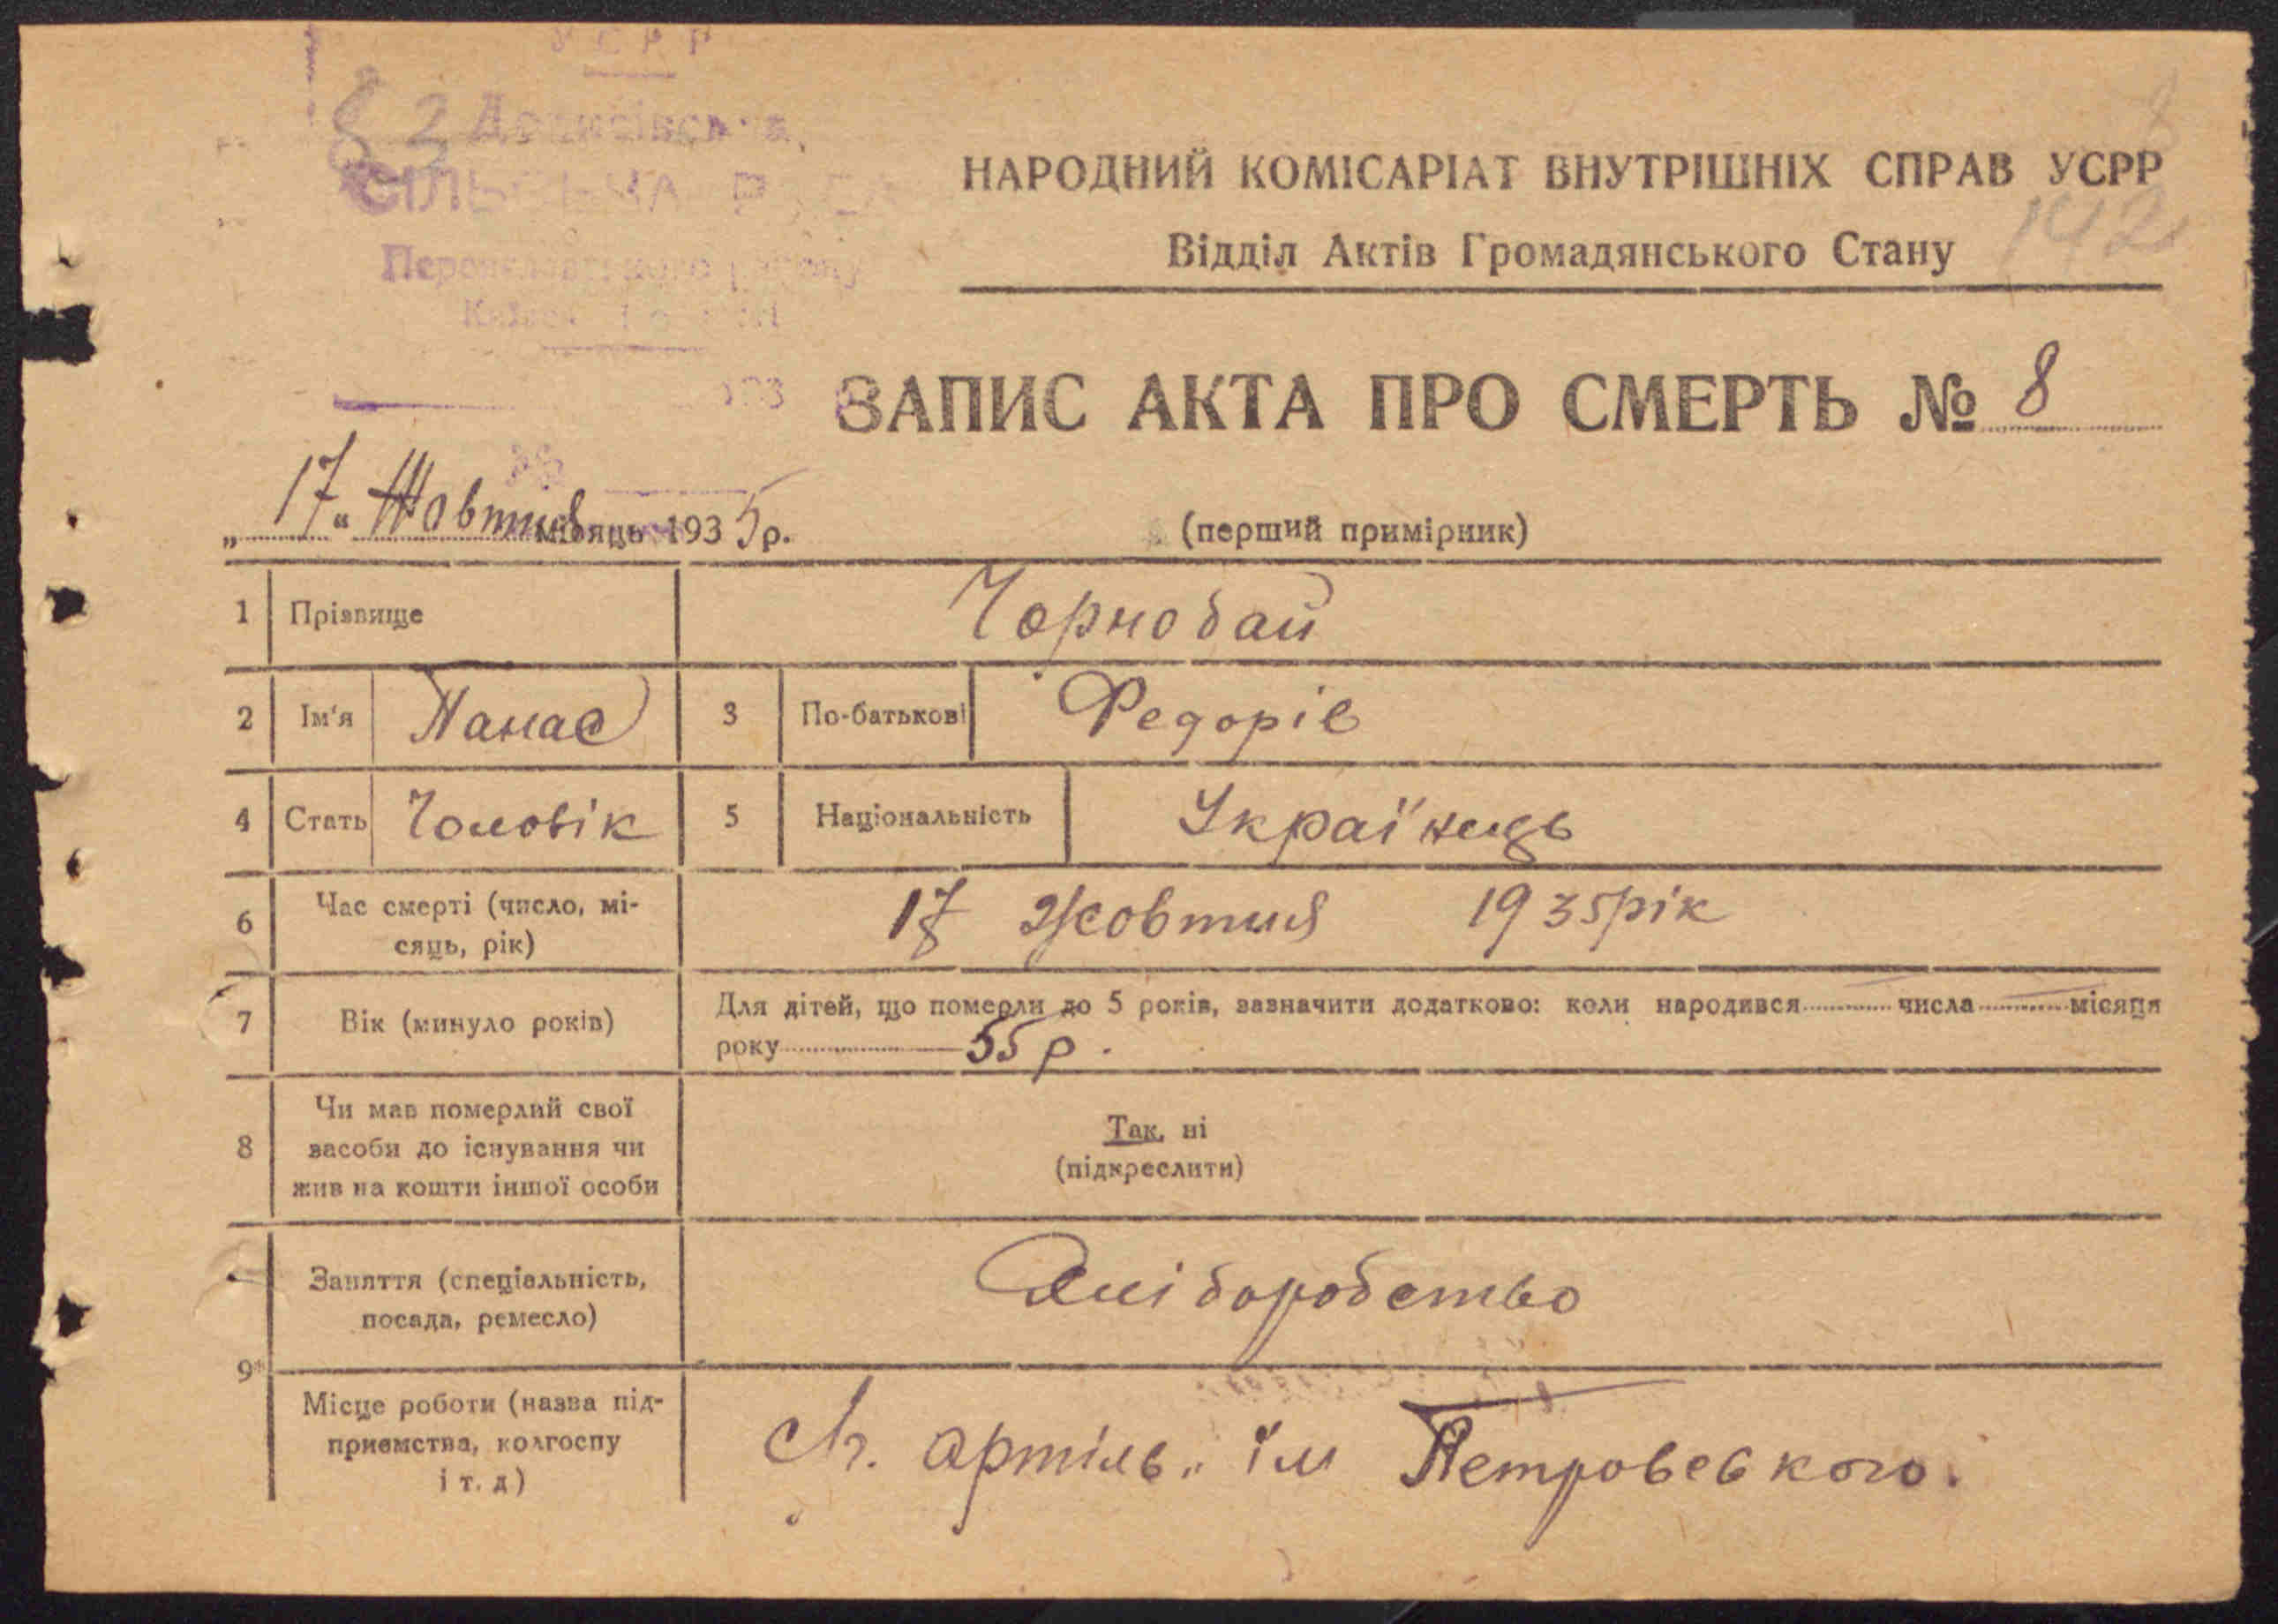 УСРР
82
СІЛЬСЬКА РАДА
НАРОДНИЙ КОМІСАРІАТ ВНУТРІШНІХ СПРАВ УСРР
142
Відділ Актів Громадянського Стану
193
ЗАПИС АКТА ПРО СМЕРТЬ № 8
„ 17 “ Жовтня місяць 1935 р.
(перший примірник)
1 Прізвище Чорнобай
2 Ім'я Панас 3 По-батькові Федорів
4 Стать Чоловік 5 Національність Українець
6 Час смерті (число, мі-
сяць, рік)
17 Жовтня 1935 рік
7 Вік (минуло років)
Для дітей, що померли до 5 років, зазначити додатково: коли народився числа місяця
року 55 р.
8 Чи мав померлий свої
засоби до існування чи
жив на кошти іншої особи
Так, ні
(підкреслити)
Заняття (спеціальність,
посада, ремесло)
Хліборобство
9*
Місце роботи (назва під-
приємства, колгоспу
і т. д)
артіль „ їм Петровського.